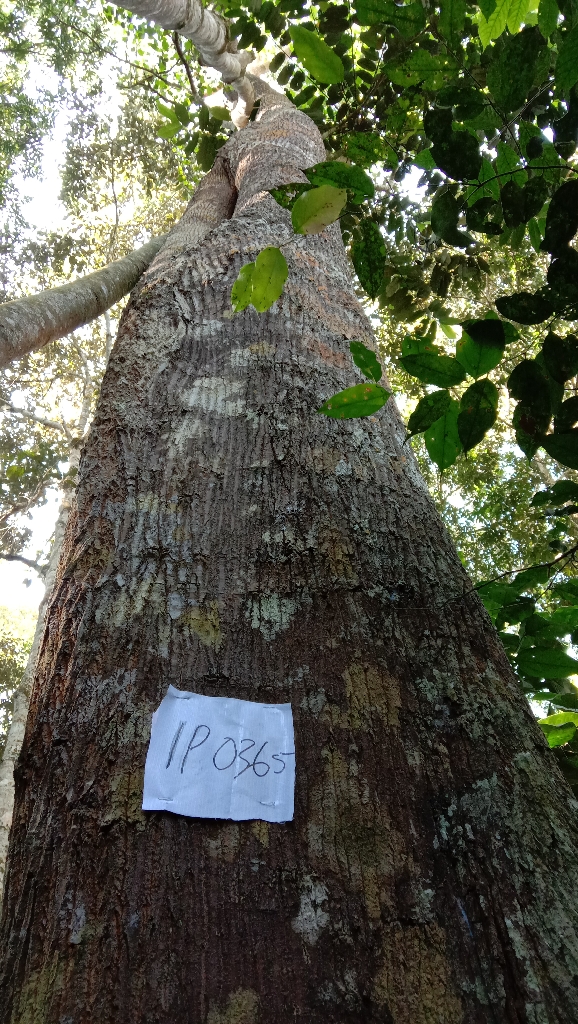 IP 0365